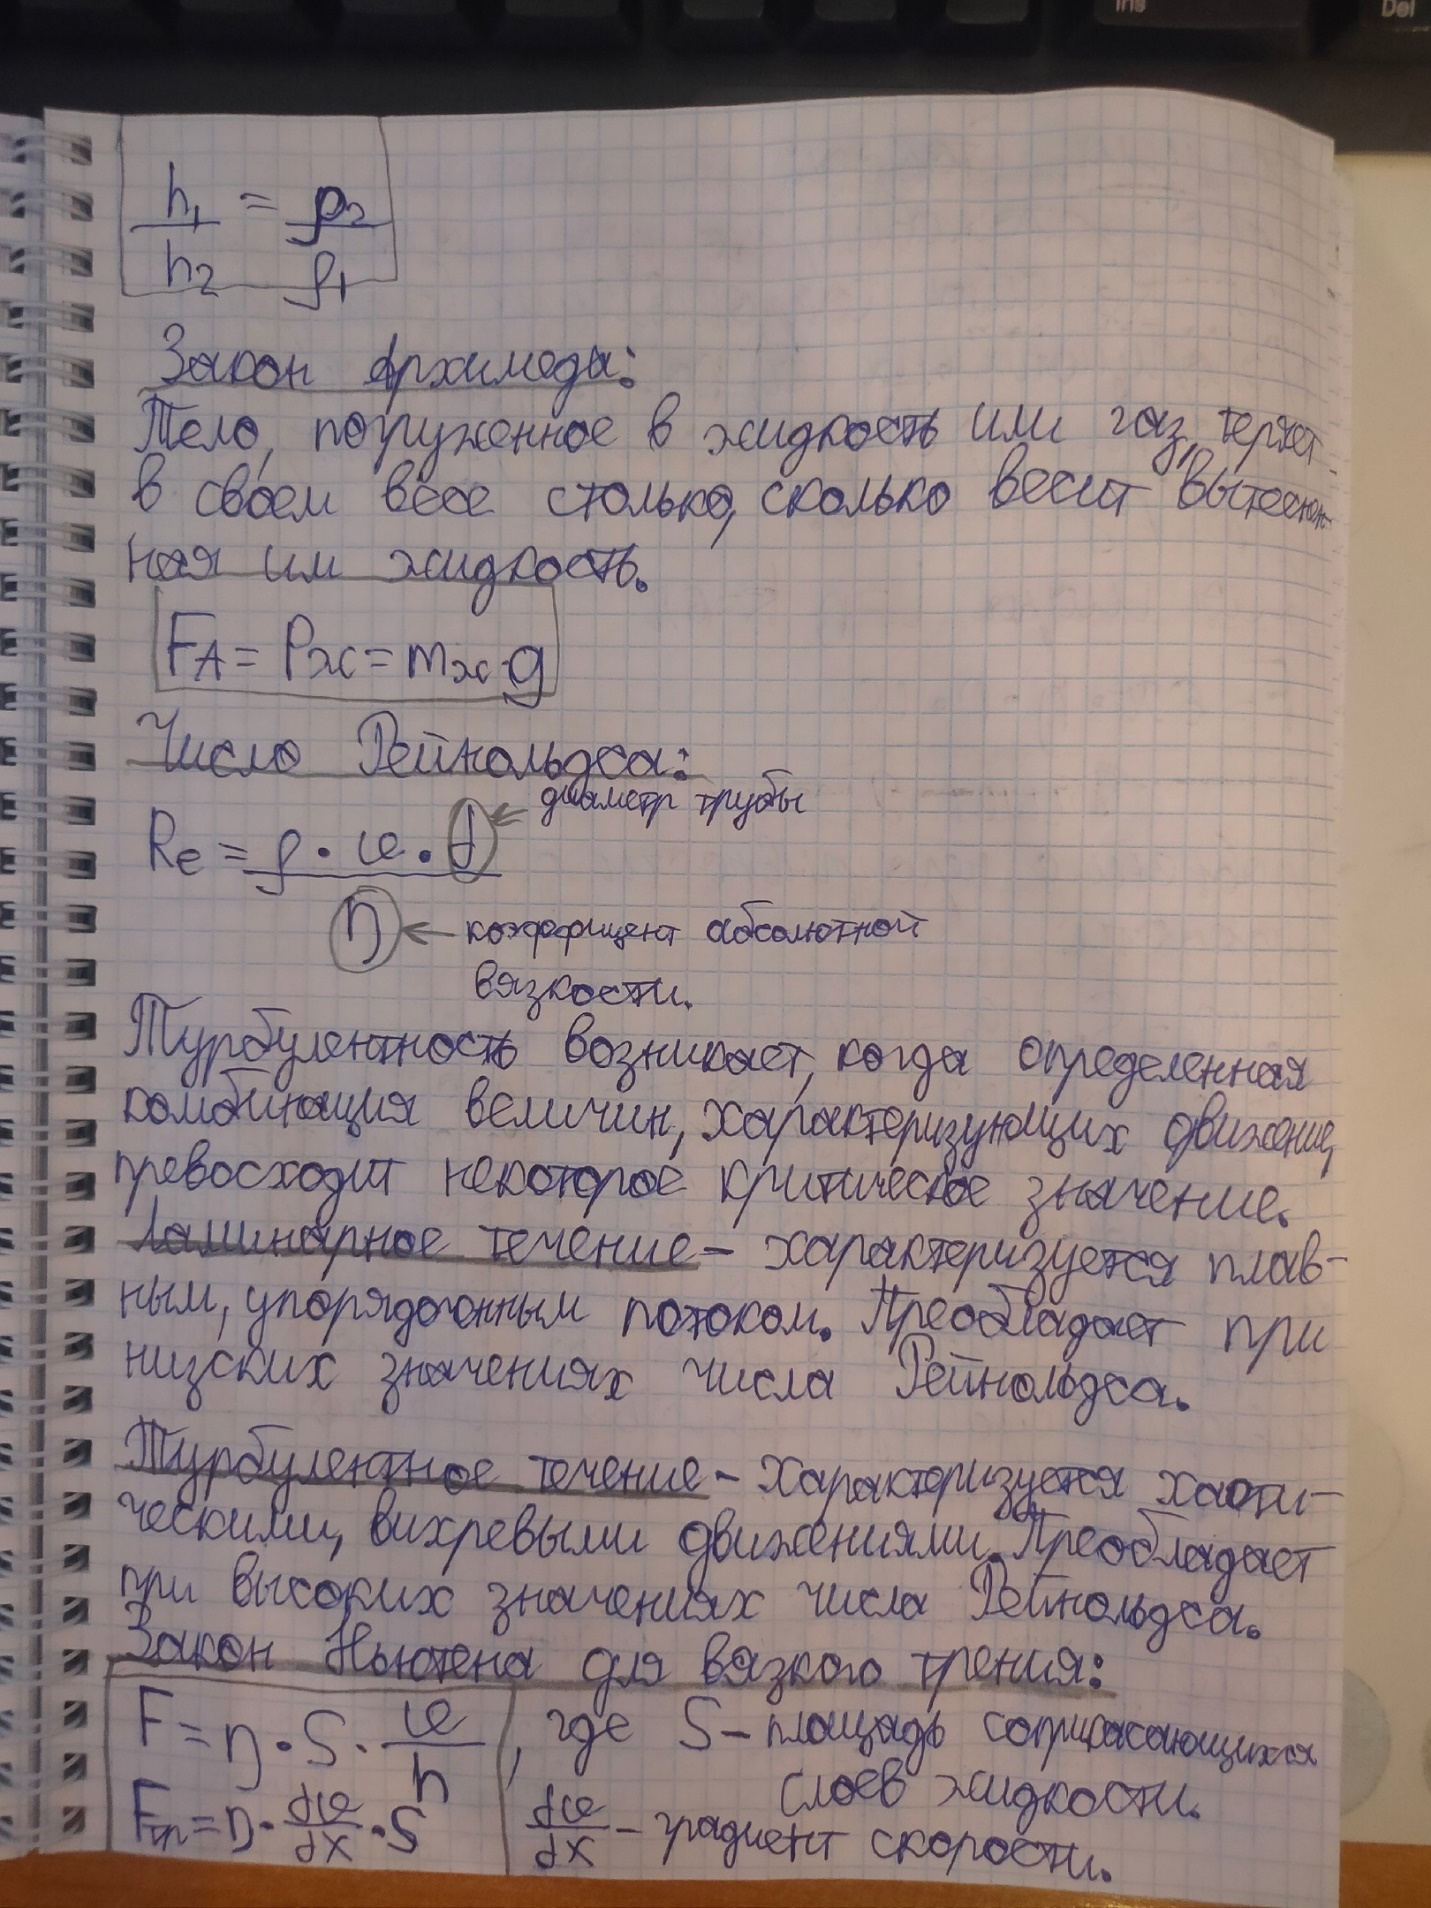 Ins
Del
h₁/h₂ = ρ₂/ρ₁
Закон Архимеда:
Тело, погруженное в жидкость или газ, теряет
в своем весе столько, сколько весит вытеснен-
ная им жидкость.
Fᴀ = Pж = mж·g
Число Рейнольдса:
диаметр трубы
Re = ρ · υ · d / η
коэффициент абсолютной
вязкости.
Турбулентность возникает, когда определенная
комбинация величин, характеризующих движение,
превосходит некоторое критическое значение.
Ламинарное течение – характеризуется плав-
ным, упорядоченным потоком. Преобладает при
низких значениях числа Рейнольдса.
Турбулентное течение – характеризуется хаоти-
ческими, вихревыми движениями. Преобладает
при высоких значениях числа Рейнольдса.
Закон Ньютона для вязкого трения:
F = η · S · υ/h, где S – площадь соприкасающихся
слоев жидкости.
Fтр = η · dυ/dx · S dυ/dx – градиент скорости.